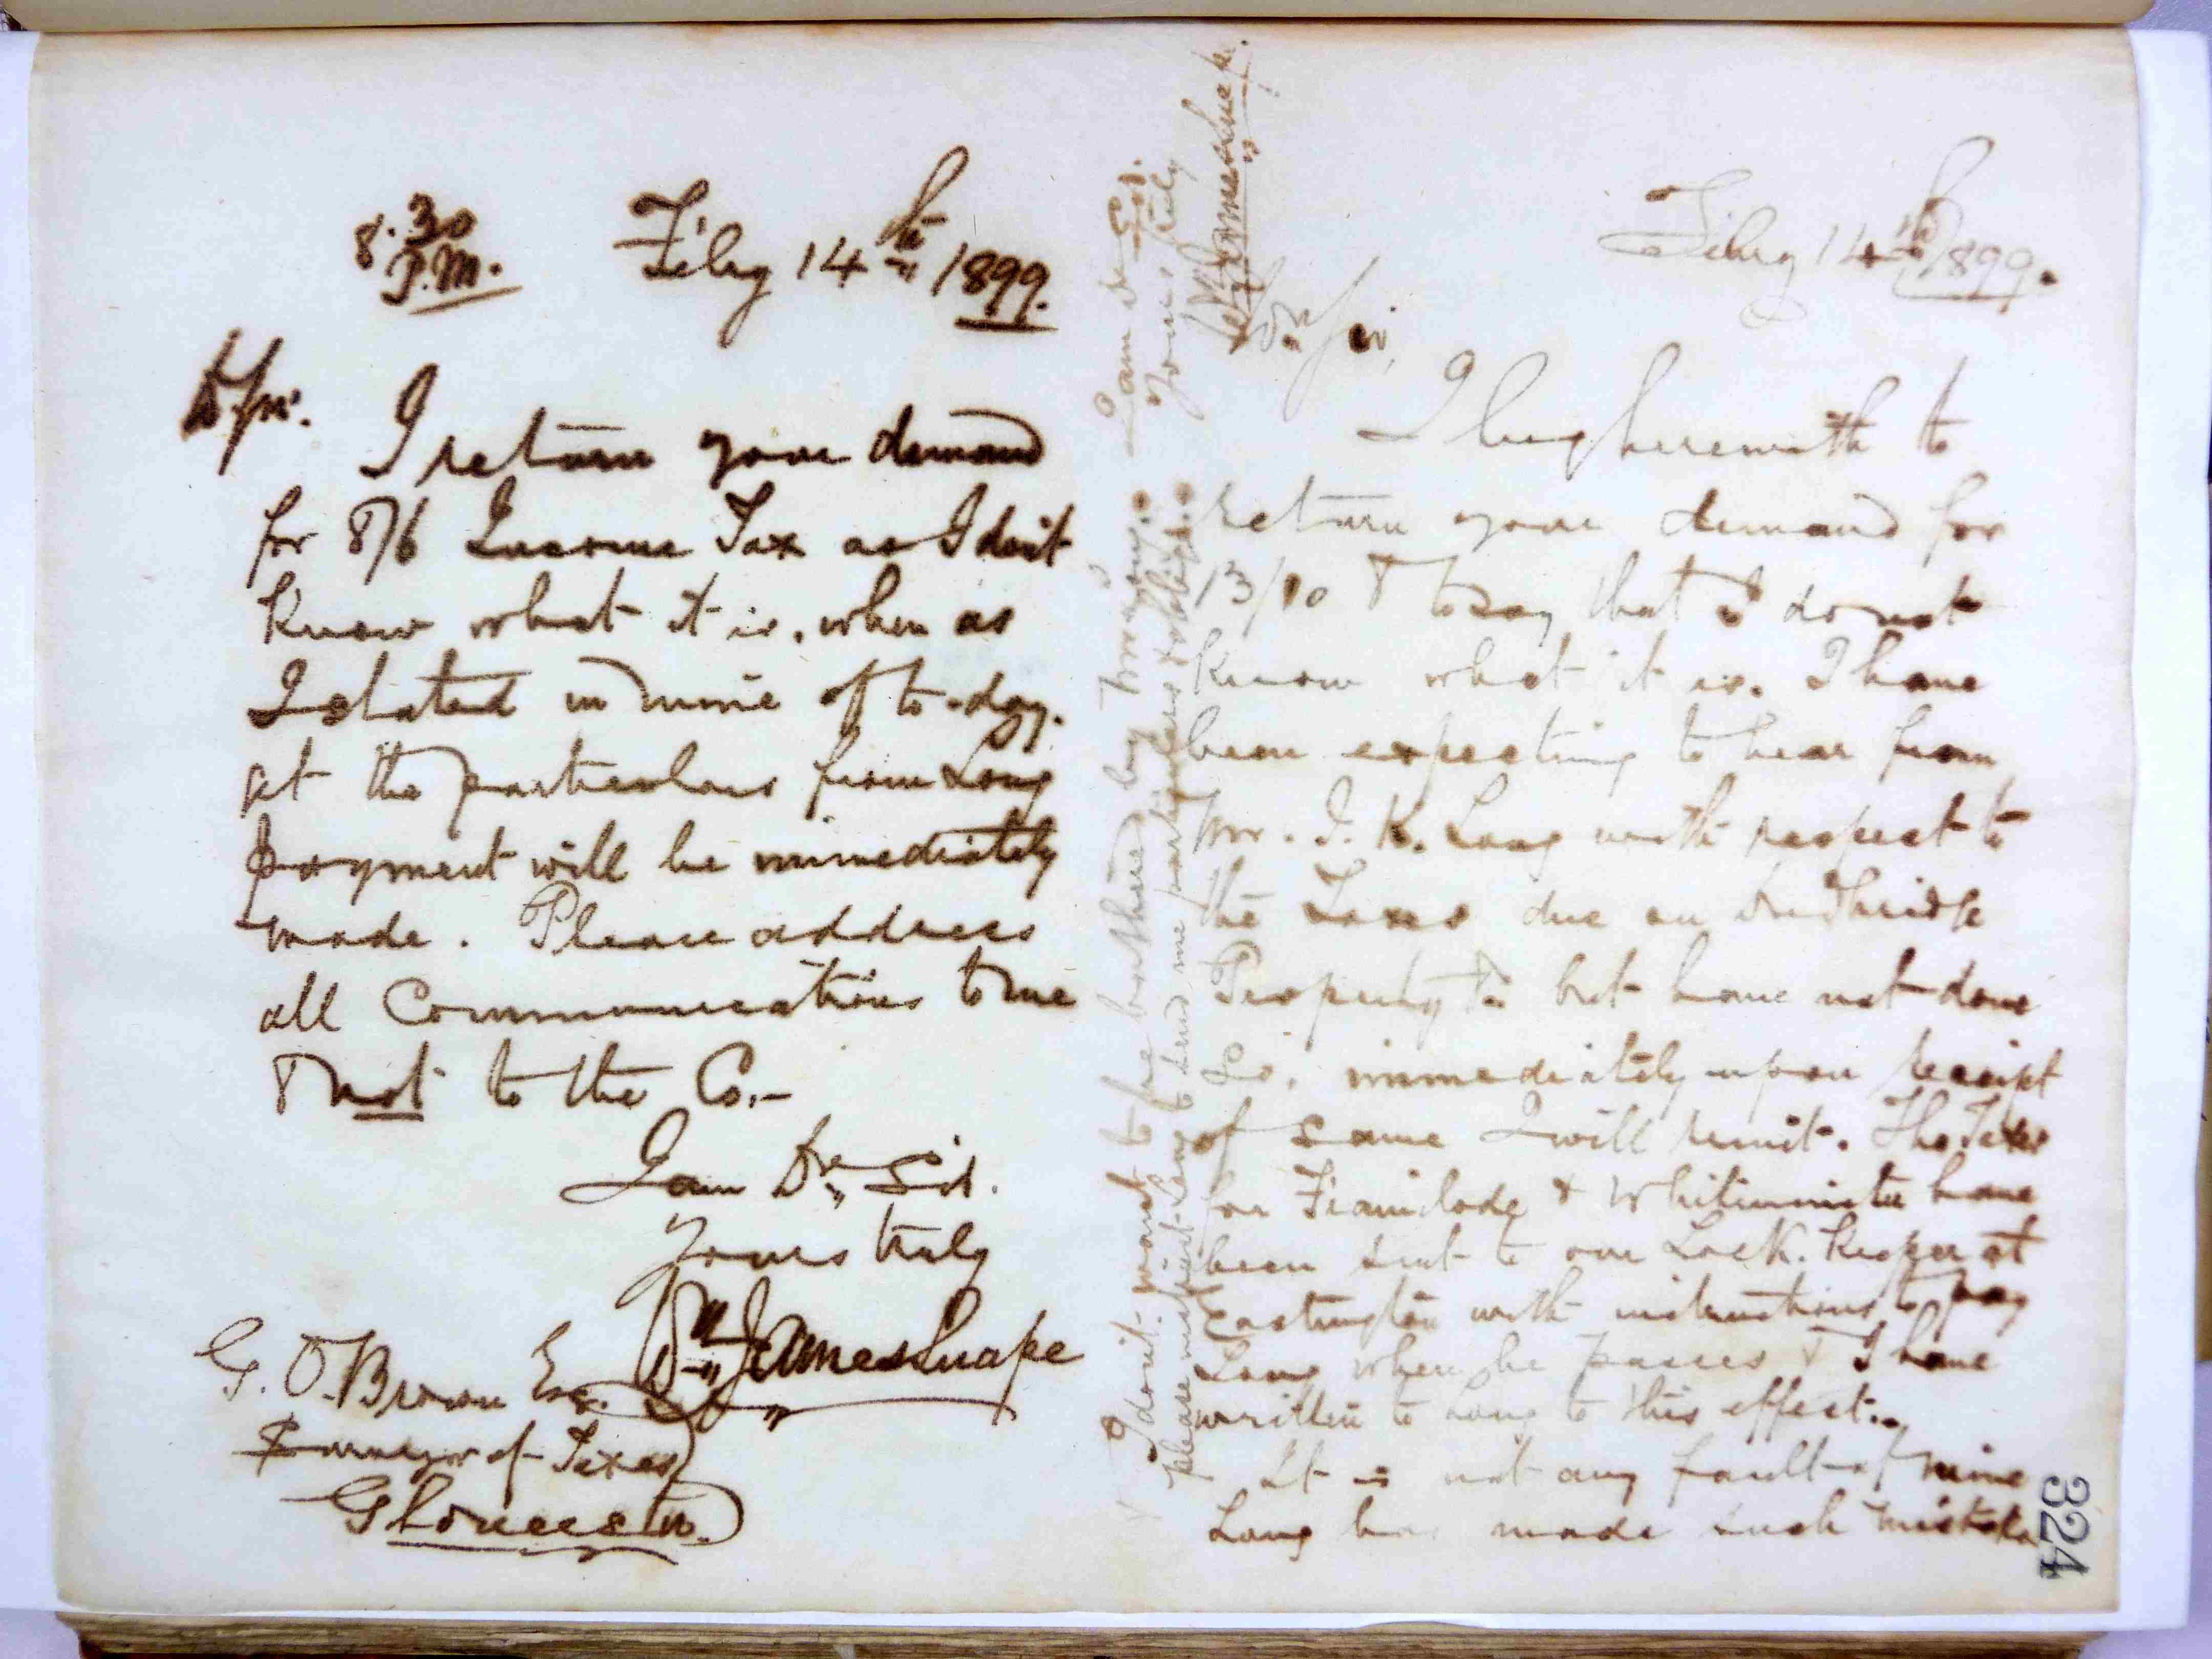 8.30
P.M.
Feby 14th 1899.
Dr Sir.
I return your demand
for 8/6 Income Tax as I don't
know what it is, when as
I stated in mine of to-day.
get the particulars from Long
payment will be immediately
made. Please address
all Communications to me
& not to the Co.-
I am Dr Sir.
Yours truly
Wm James Snape
G. O. Brown Esq.
Surveyor of Taxes
Gloucester.
Feby 14th 1899.
Dr Sir,
I beg herewith to
return your demand for
13/10 & to say that I do not
know what it is. I have
been expecting to hear from
Mr. I. K. Long with respect to
the Taxes due on
Property but have not done
so. immediately upon receipt
of same I will remit. The Taxes
for Framilode & Whitminster have
been sent to our Lock. Keeper at
Eastington with instructions to pay
Long when he passes & I have
written to Long to this effect.
It is not any fault of mine
Long has made such mistake
I don't want to be bothered by
please instruct Long to send me particulars & oblige.
I am dr Sir.
Yours truly
Wm James Snape.
324